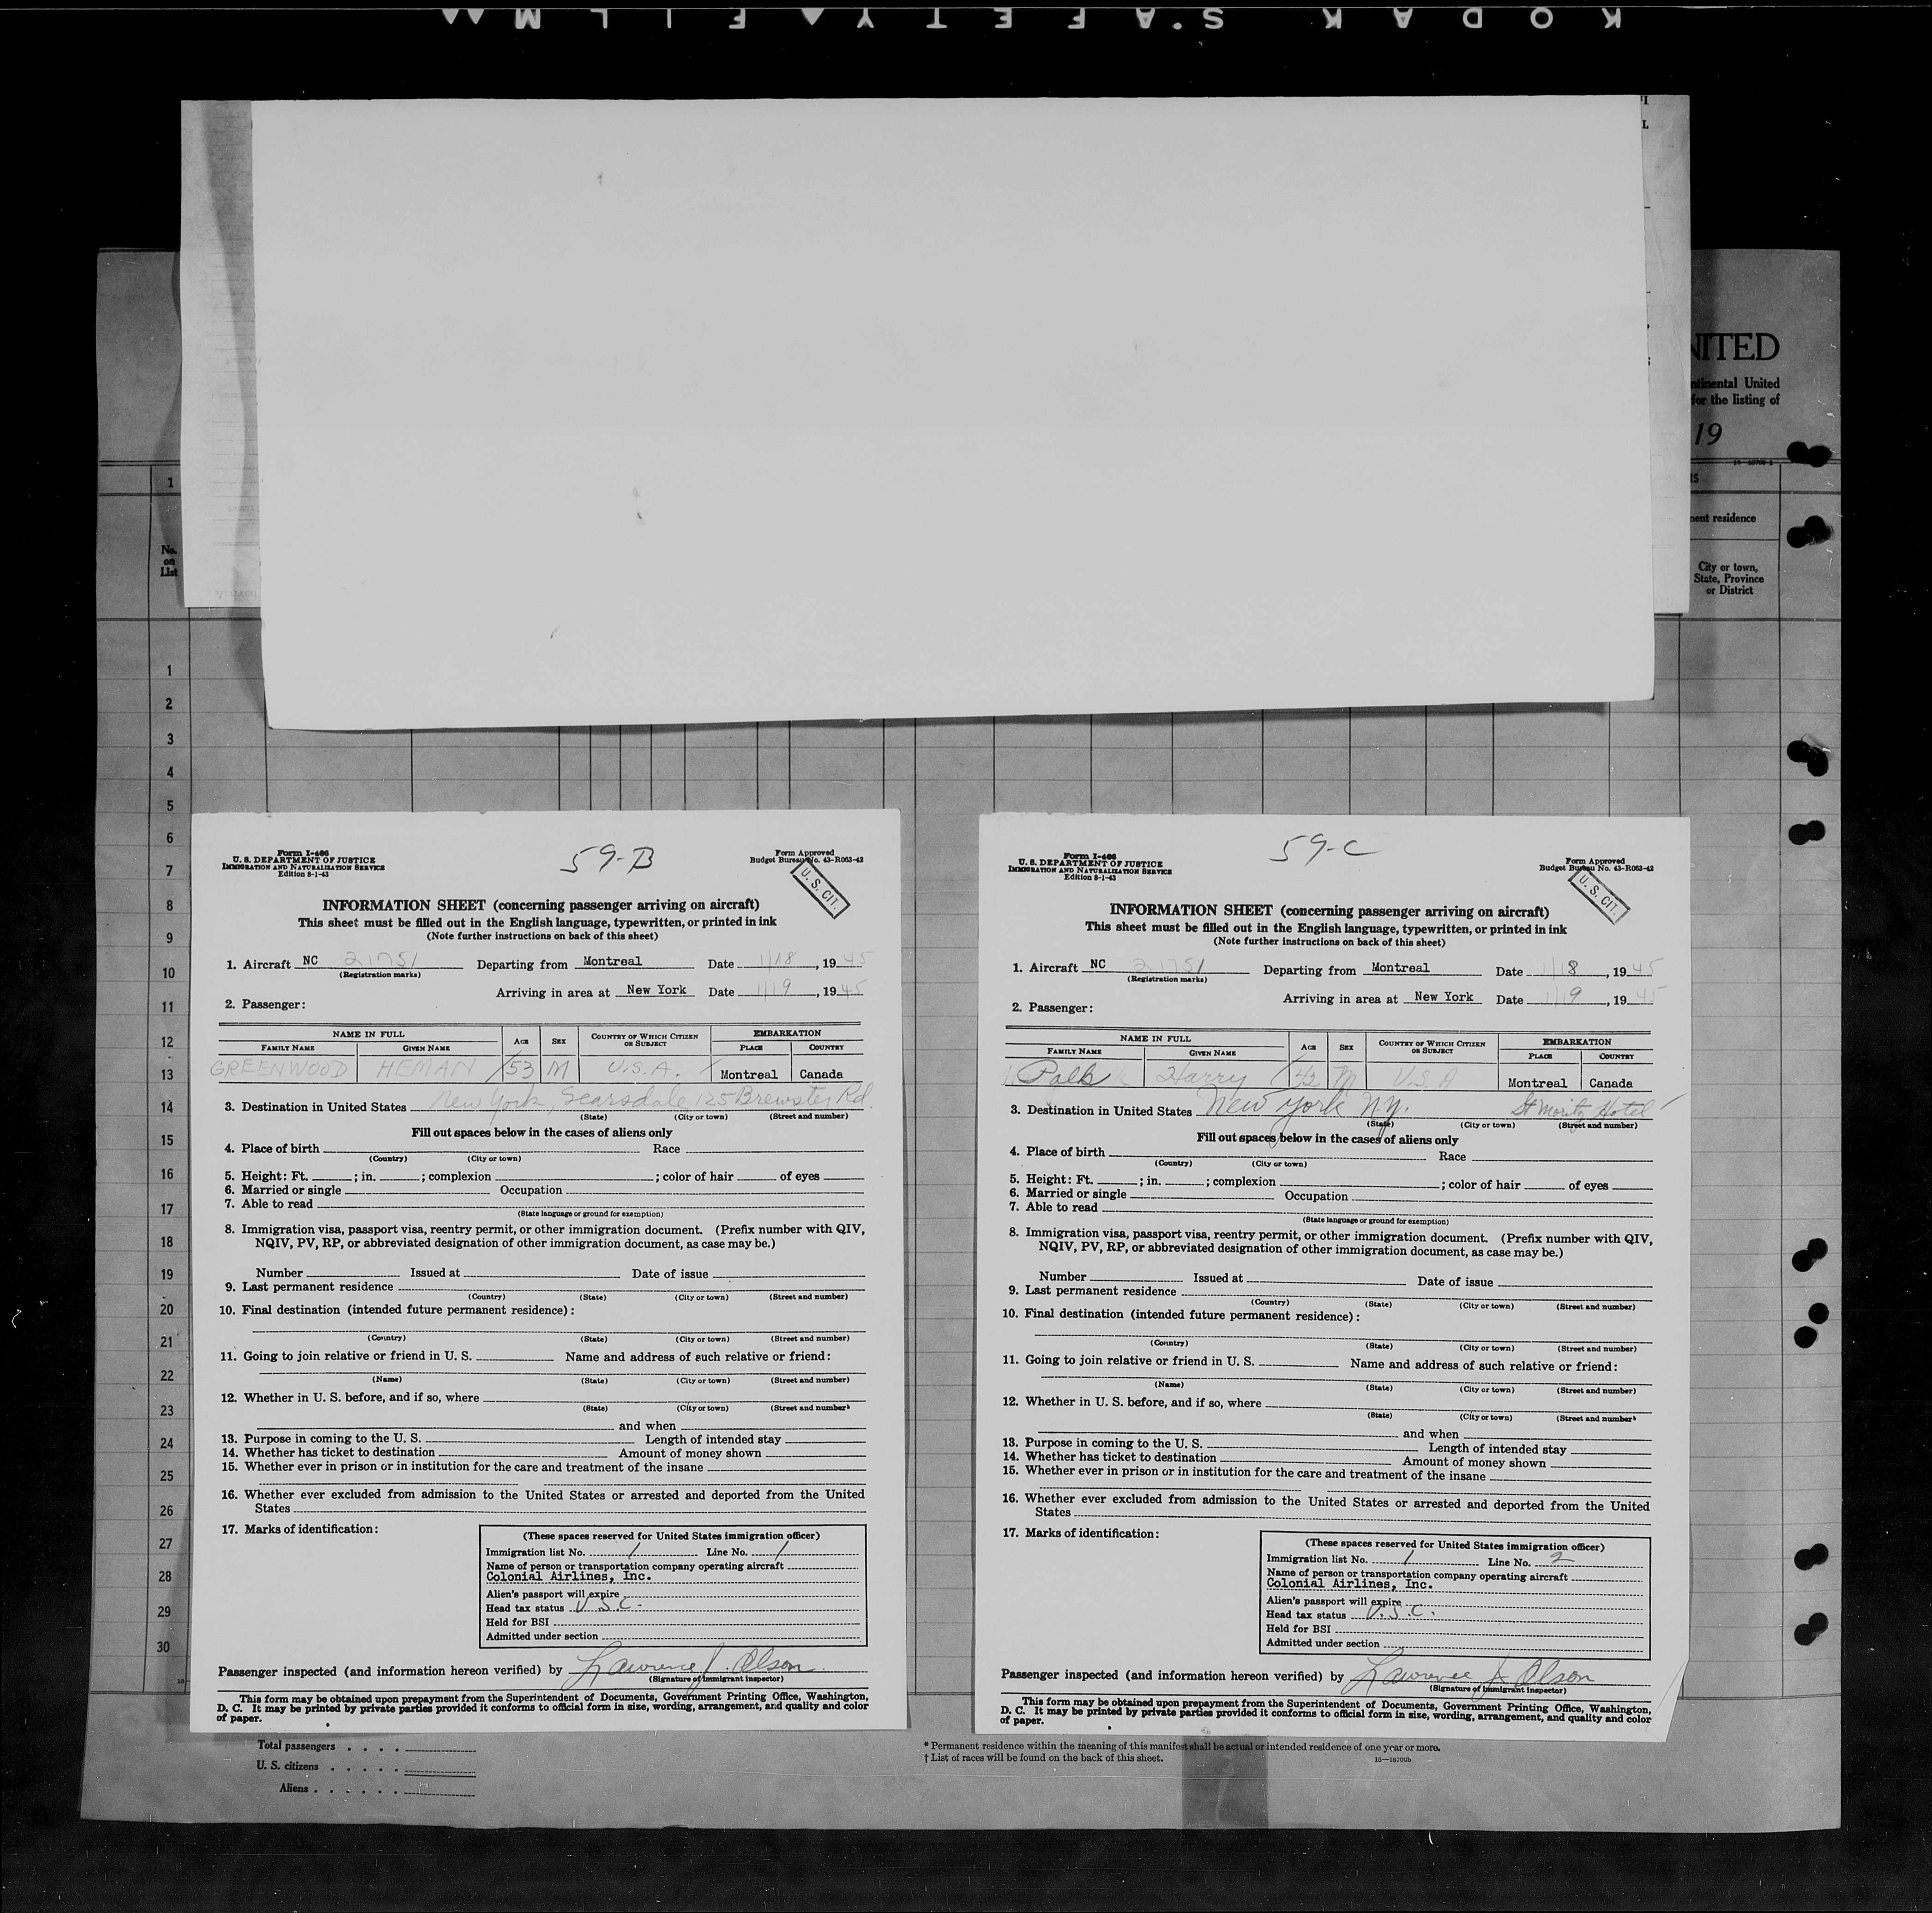 KODAK S.AFETY FILM
NITED
ntinental United
for the listing of
19
16—18709-1
15
nent residence
City or town,
State, Province
or District
1
No.
on
List
1
2
3
4
5
6
7
8
9
10
11
12
13
14
15
16
17
18
19
20
21
22
23
24
25
26
27
28
29
30
Form I-466
U. S. DEPARTMENT OF JUSTICE
IMMIGRATION AND NATURALIZATION SERVICE
Edition 8-1-43
59-B
Form Approved
Budget Bureau No. 43-R063-42
U. S. CIT.
INFORMATION SHEET (concerning passenger arriving on aircraft)
This sheet must be filled out in the English language, typewritten, or printed in ink
(Note further instructions on back of this sheet)
1. Aircraft NC 21751 Departing from Montreal Date 1/18, 1945
(Registration marks)
Arriving in area at New York Date 1/19, 1945
2. Passenger:
NAME IN FULL
FAMILY NAME GIVEN NAME AGE SEX COUNTRY OF WHICH CITIZEN OR SUBJECT EMBARKATION PLACE COUNTRY
GREENWOOD HEMAN 53 M U.S.A. Montreal Canada
3. Destination in United States New York, Scarsdale 125 Brewster Rd.
(State) (City or town) (Street and number)
Fill out spaces below in the cases of aliens only
4. Place of birth Race
(Country) (City or town)
5. Height: Ft. ; in. ; complexion ; color of hair of eyes
6. Married or single Occupation
7. Able to read
(State language or ground for exemption)
8. Immigration visa, passport visa, reentry permit, or other immigration document. (Prefix number with QIV,
NQIV, PV, RP, or abbreviated designation of other immigration document, as case may be.)
Number Issued at Date of issue
9. Last permanent residence
(Country) (State) (City or town) (Street and number)
10. Final destination (intended future permanent residence):
(Country) (State) (City or town) (Street and number)
11. Going to join relative or friend in U. S. Name and address of such relative or friend:
(Name) (State) (City or town) (Street and number)
12. Whether in U. S. before, and if so, where
(State) (City or town) (Street and number)
and when
13. Purpose in coming to the U. S. Length of intended stay
14. Whether has ticket to destination Amount of money shown
15. Whether ever in prison or in institution for the care and treatment of the insane
16. Whether ever excluded from admission to the United States or arrested and deported from the United
States
17. Marks of identification:
(These spaces reserved for United States immigration officer)
Immigration list No. 1 Line No. 1
Name of person or transportation company operating aircraft
Colonial Airlines, Inc.
Alien's passport will expire
Head tax status U.S.C.
Held for BSI
Admitted under section
Passenger inspected (and information hereon verified) by Lawrence J. Olson
(Signature of immigrant inspector)
This form may be obtained upon prepayment from the Superintendent of Documents, Government Printing Office, Washington,
D. C. It may be printed by private parties provided it conforms to official form in size, wording, arrangement, and quality and color
of paper.
Form I-466
U. S. DEPARTMENT OF JUSTICE
IMMIGRATION AND NATURALIZATION SERVICE
Edition 8-1-43
59-C
Form Approved
Budget Bureau No. 43-R063-42
U. S. CIT.
INFORMATION SHEET (concerning passenger arriving on aircraft)
This sheet must be filled out in the English language, typewritten, or printed in ink
(Note further instructions on back of this sheet)
1. Aircraft NC 21751 Departing from Montreal Date 1/18, 1945
(Registration marks)
Arriving in area at New York Date 1/19, 1945
2. Passenger:
NAME IN FULL
FAMILY NAME GIVEN NAME AGE SEX COUNTRY OF WHICH CITIZEN OR SUBJECT EMBARKATION PLACE COUNTRY
Polk Harry 42 M U.S.A Montreal Canada
3. Destination in United States New York N.Y. St Moritz Hotel
(State) (City or town) (Street and number)
Fill out spaces below in the cases of aliens only
4. Place of birth Race
(Country) (City or town)
5. Height: Ft. ; in. ; complexion ; color of hair of eyes
6. Married or single Occupation
7. Able to read
(State language or ground for exemption)
8. Immigration visa, passport visa, reentry permit, or other immigration document. (Prefix number with QIV,
NQIV, PV, RP, or abbreviated designation of other immigration document, as case may be.)
Number Issued at Date of issue
9. Last permanent residence
(Country) (State) (City or town) (Street and number)
10. Final destination (intended future permanent residence):
(Country) (State) (City or town) (Street and number)
11. Going to join relative or friend in U. S. Name and address of such relative or friend:
(Name) (State) (City or town) (Street and number)
12. Whether in U. S. before, and if so, where
(State) (City or town) (Street and number)
and when
13. Purpose in coming to the U. S. Length of intended stay
14. Whether has ticket to destination Amount of money shown
15. Whether ever in prison or in institution for the care and treatment of the insane
16. Whether ever excluded from admission to the United States or arrested and deported from the United
States
17. Marks of identification:
(These spaces reserved for United States immigration officer)
Immigration list No. 1 Line No. 2
Name of person or transportation company operating aircraft
Colonial Airlines, Inc.
Alien's passport will expire
Head tax status U.S.C.
Held for BSI
Admitted under section
Passenger inspected (and information hereon verified) by Lawrence J. Olson
(Signature of immigrant inspector)
This form may be obtained upon prepayment from the Superintendent of Documents, Government Printing Office, Washington,
D. C. It may be printed by private parties provided it conforms to official form in size, wording, arrangement, and quality and color
of paper.
Total passengers
U. S. citizens
Aliens
* Permanent residence within the meaning of this manifest shall be actual or intended residence of one year or more.
† List of races will be found on the back of this sheet.
16—18709b